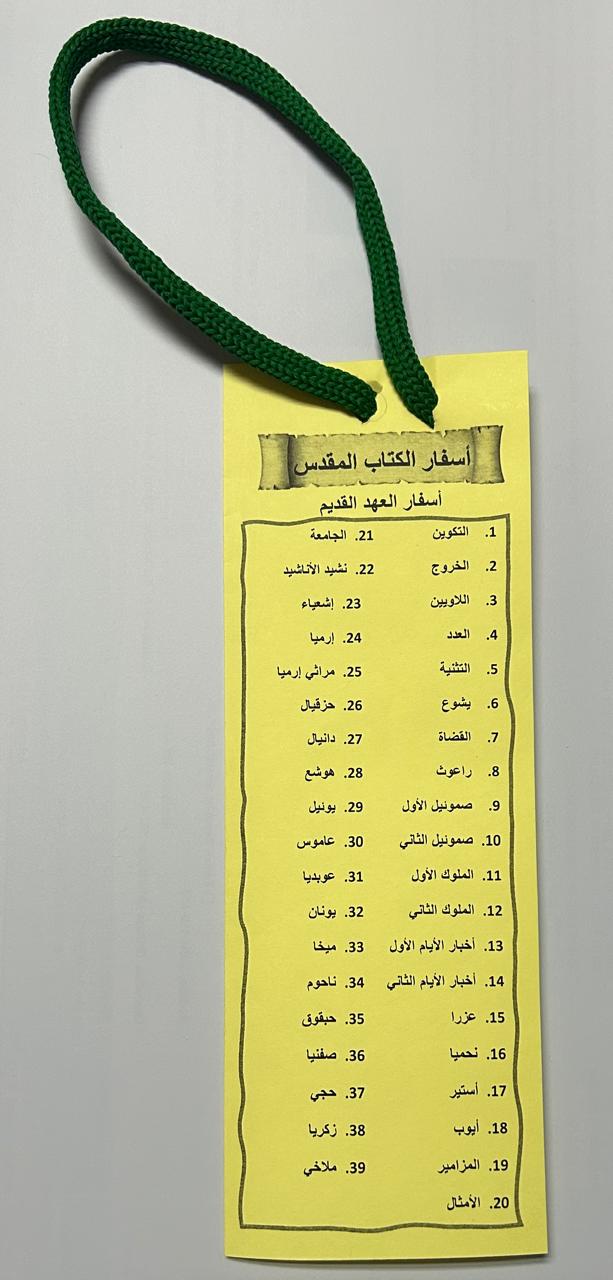 أسفار الكتاب المقدس
أسفار العهد القديم
1. التكوين
2. الخروج
3. اللاويين
4. العدد
5. التثنية
6. يشوع
7. القضاة
8. راعوث
9. صموئيل الأول
10. صموئيل الثاني
11. الملوك الأول
12. الملوك الثاني
13. أخبار الأيام الأول
14. أخبار الأيام الثاني
15. عزرا
16. نحميا
17. أستير
18. أيوب
19. المزامير
20. الأمثال
21. الجامعة
22. نشيد الأناشيد
23. إشعياء
24. إرميا
25. مراثي إرميا
26. حزقيال
27. دانيال
28. هوشع
29. يوئيل
30. عاموس
31. عوبديا
32. يونان
33. ميخا
34. ناحوم
35. حبقوق
36. صفنيا
37. حجي
38. زكريا
39. ملاخي